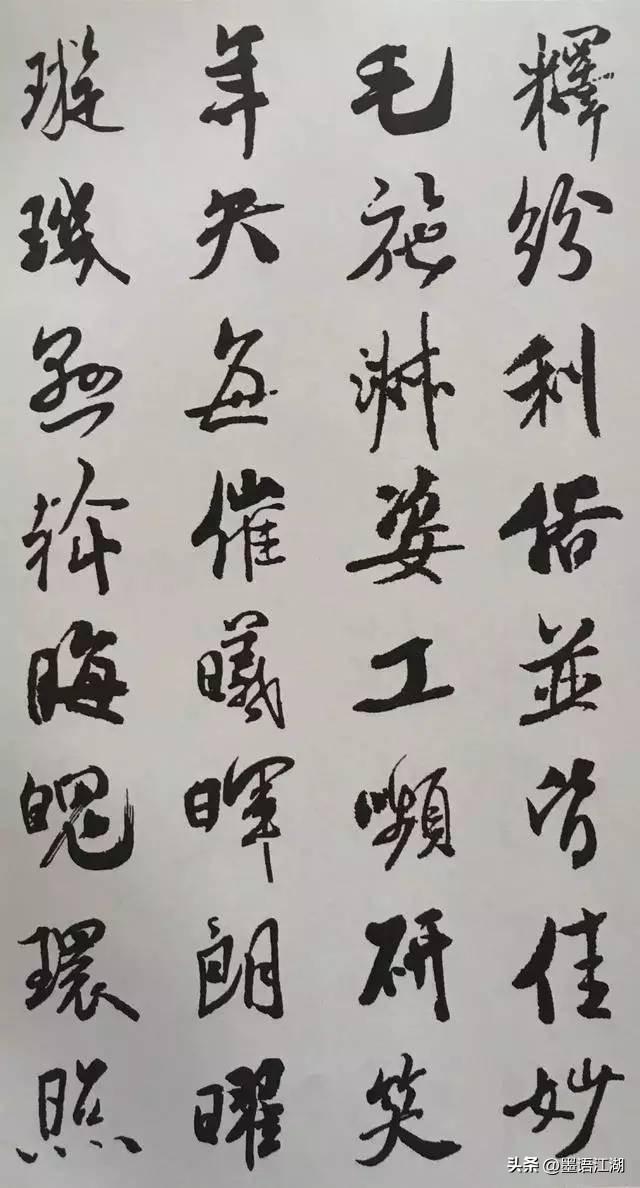 釋紛利俗並皆佳妙
毛施淑姿工嚬研笑
年矢每催曦暉朗曜
璇璣懸斡晦魄環照
头条 @墨语江湖